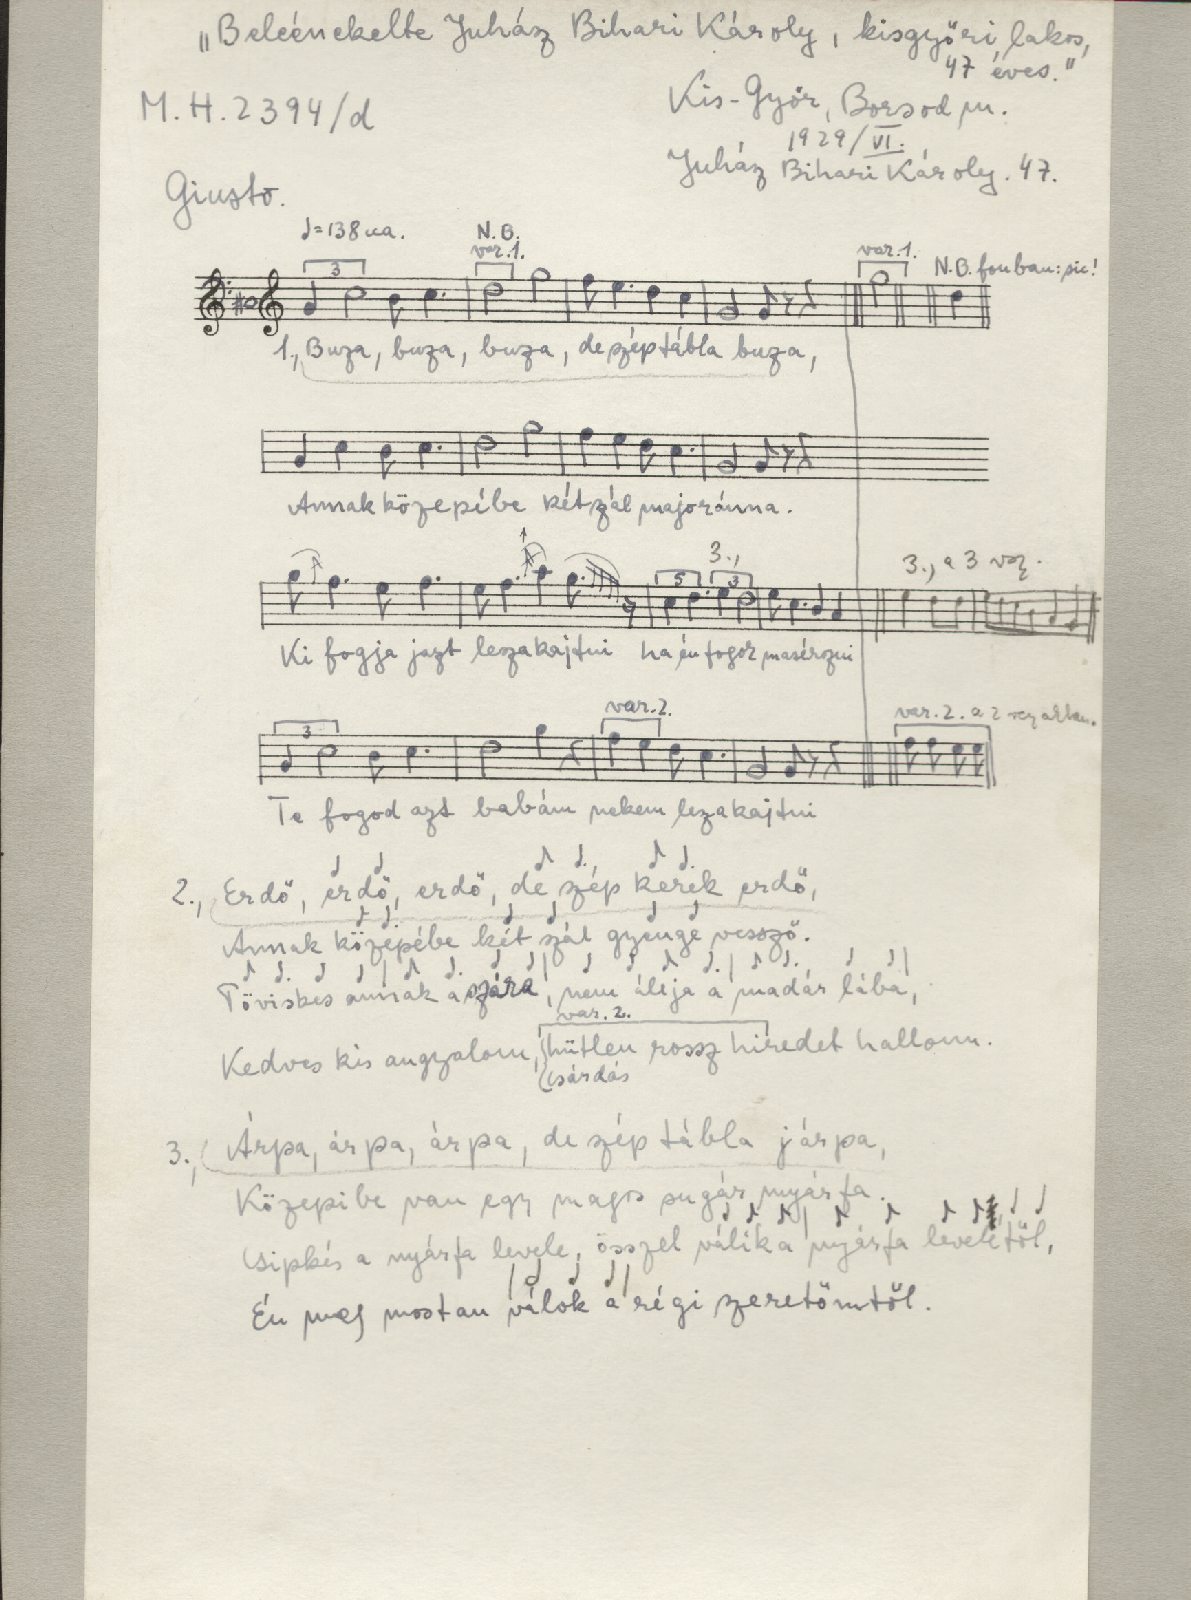 „Beleénekelte Juház Bihari Károly, kisgyőri lakos,
47 éves."
M.H.2394/d
Kis-Győr, Borsod m.
1929/VI.
Juház Bihari Károly. 47.
Giusto.
♩=138 ca.
N.B.
var.1.
var.1.
N.B. fonban: sic!
3
1., Buza, buza, buza, de szép tábla buza,
Annak közepíbe két szál majoránna.
3.,
3., a 3 vsz.
5 3
Ki fogja jazt leszakajtni ha én fogok masérozni
var.2.
var. 2. a 2 vsz.
3
Te fogod azt babám nekem lezakajtni
2., Erdő, erdő, erdő, de szép kerek erdő,
Annak közepébe két szál gyenge vessző.
Töviskes annak a szára, nem állja a madár lába,
var. 2.
Kedves kis angyalom, hütlen rossz hiredet hallom.
csárdás
3., Árpa, árpa, árpa, de szép tábla járpa,
Közepibe van egy magos sugár nyárfa.
Csipkés a nyárfa levele, összel válik a nyárfa levelétől,
Én meg mostan válok a régi szeretőmtől.